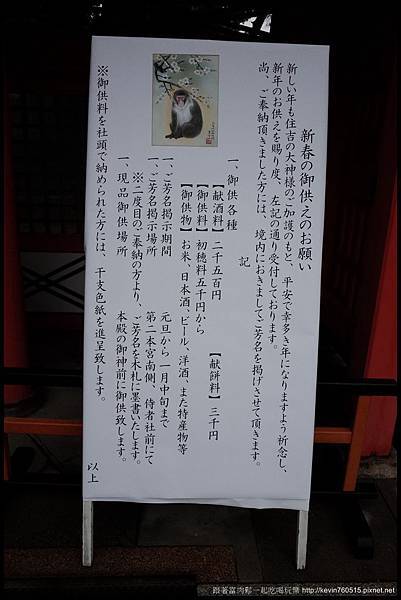 新春の御供えのお願い
新しい年も住吉の大神様のご加護のもと、平安で幸多き年になりますよう祈念し、
新年のお供えを賜り度、左記の通り受付しております。
尚、ご奉納頂きました方には、境内におきましてご芳名を掲げさせて頂きます。
記
一、御供各種
【献酒料】二千五百円 【献餅料】三千円
【御供料】初穂料五千円から
【御供物】お米、日本酒、ビール、洋酒、また特産物等
一、ご芳名掲示期間 元旦から一月中旬まで
一、ご芳名掲示場所 第二本宮南側、侍者社前にて
※二度目のご奉納の方より、ご芳名を木札に墨書いたします。
一、現品御供場所 本殿の御神前に御供致します。
※御供料を社頭で納められた方には、干支色紙を進呈致します。
以上
跟著富肉鬆一起吃喝玩樂 http://kevin760515.pixnet.net